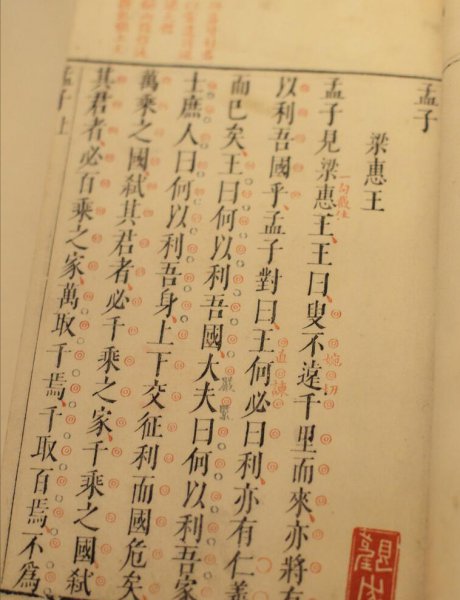 孟子
梁惠王
孟子見梁惠王王曰叟不遠千里而來亦將有
婉切
以利吾國乎孟子對曰王何必曰利亦有仁義
直諫
而已矣王曰何以利吾國大夫曰何以利吾家
士庶人曰何以利吾身上下交征利而國危矣
萬乘之國弒其君者必千乘之家千乘之國弒
其君者必百乘之家萬取千焉千取百焉不為
孟子上